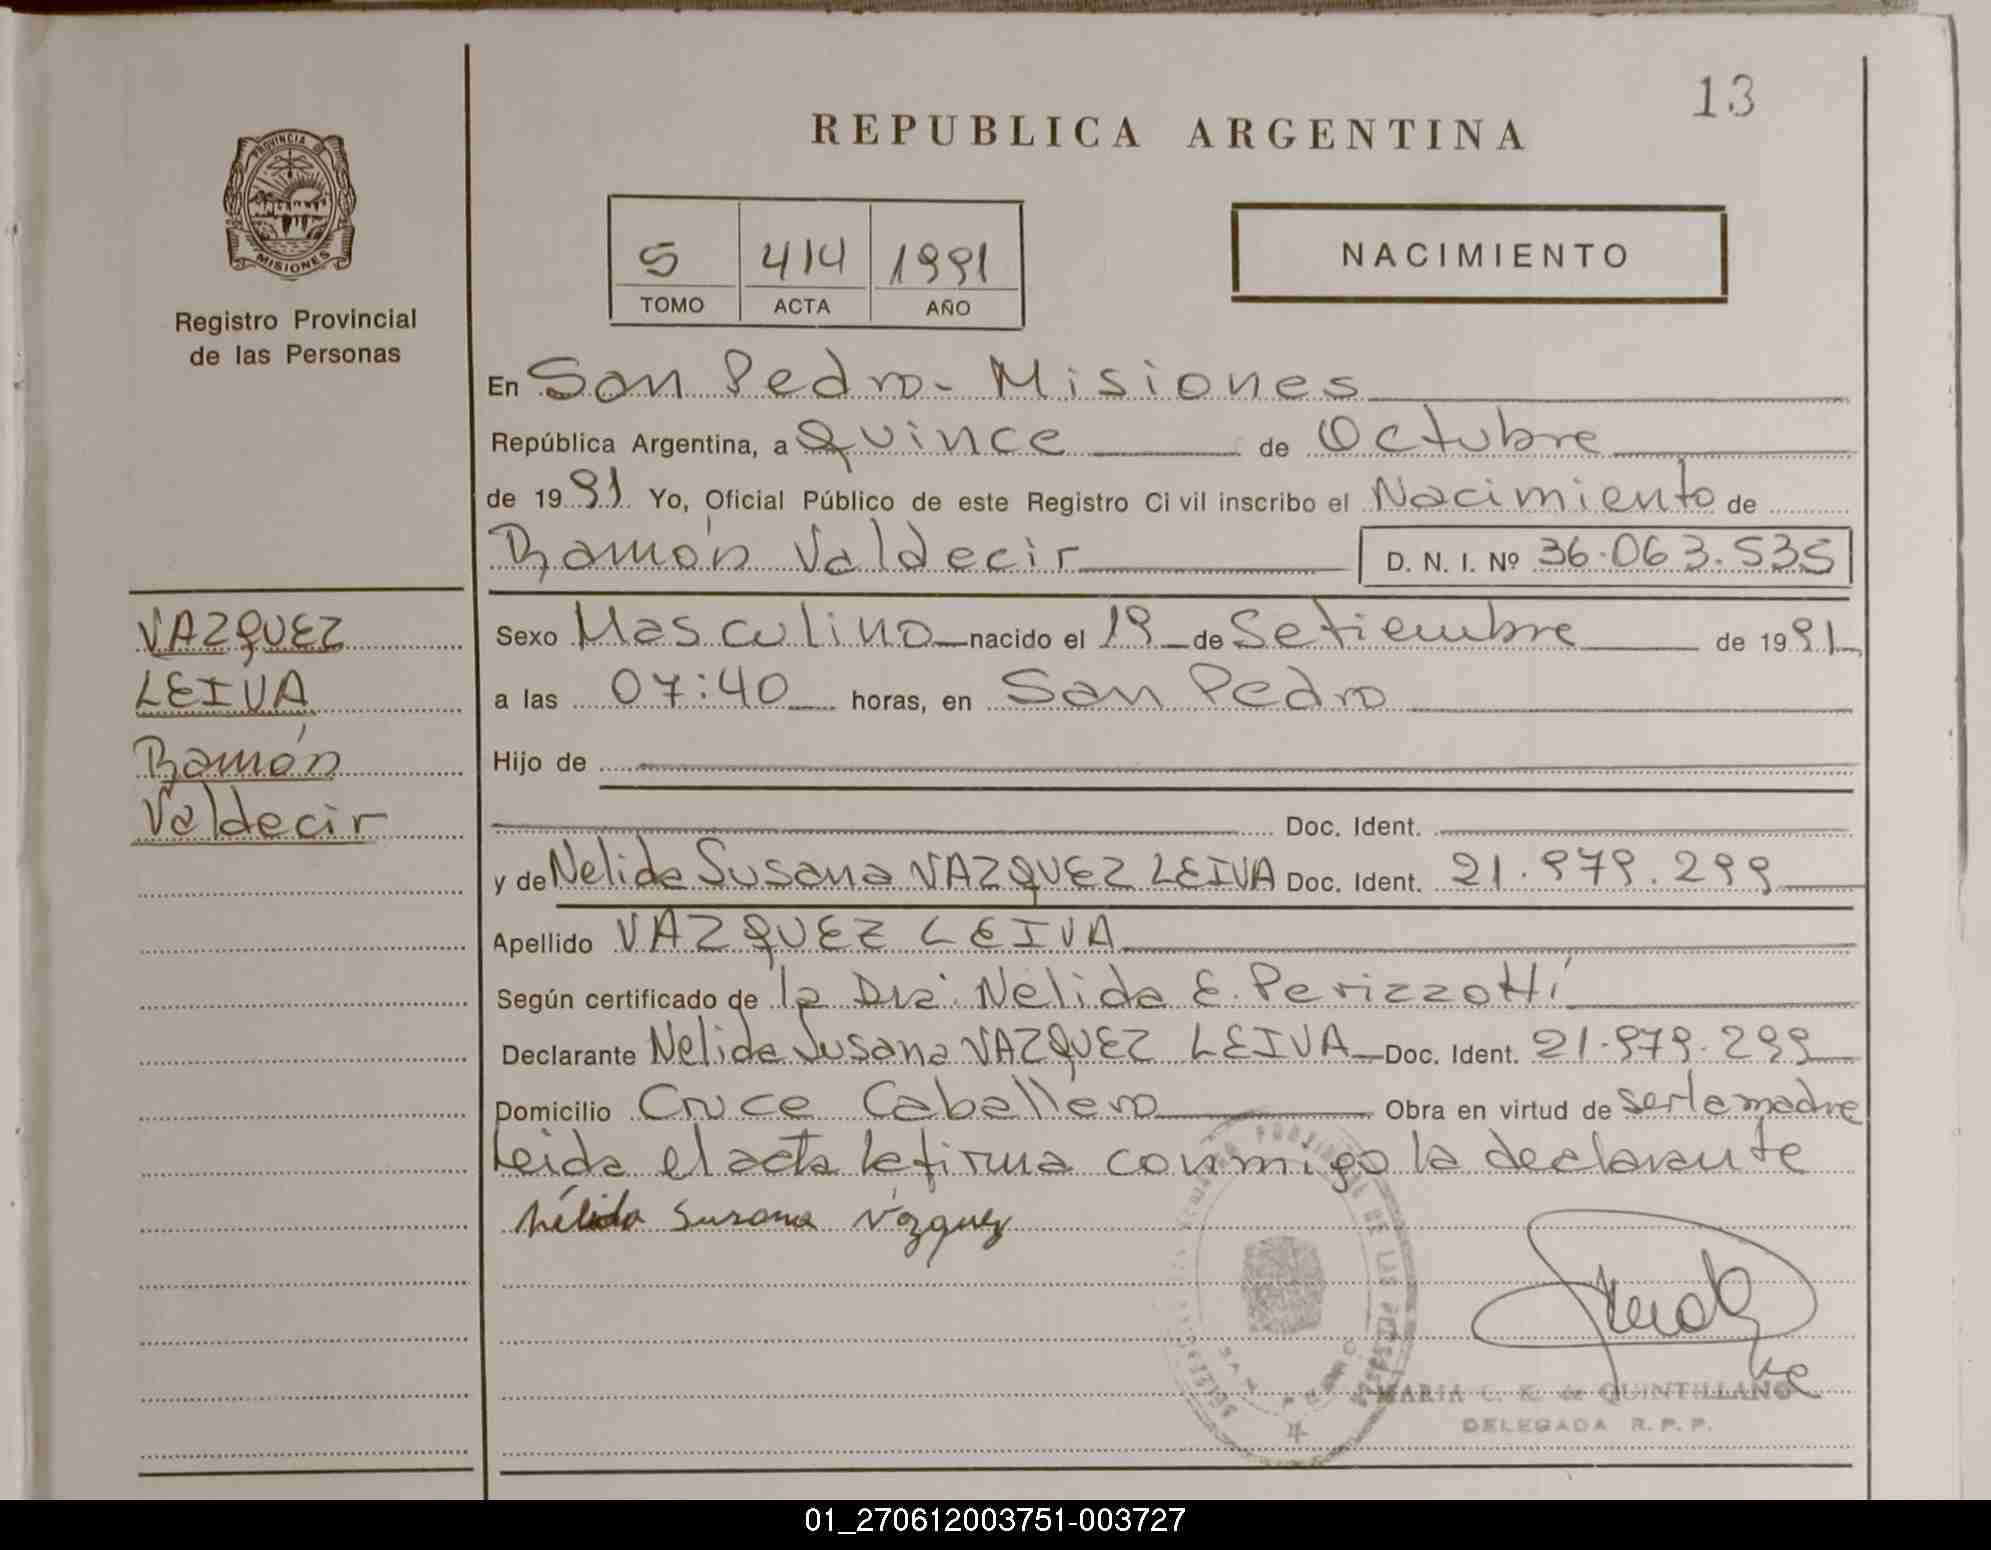 13
REPUBLICA ARGENTINA
PROVINCIA DE
MISIONES
Registro Provincial
de las Personas
5 414 1991
TOMO ACTA AÑO
NACIMIENTO
En San Pedro - Misiones
República Argentina, a Quince de Octubre
de 1991 Yo, Oficial Público de este Registro Civil inscribo el Nacimiento de
Ramón Valdecir D. N. I. Nº 36.063.535
VAZQUEZ
LEIVA
Ramón
Valdecir
Sexo Masculino nacido el 19 de Setiembre de 1991
a las 07:40 horas, en San Pedro
Hijo de
Doc. Ident.
y de Nelida Susana VAZQUEZ LEIVA Doc. Ident. 21.979.299
Apellido VAZQUEZ LEIVA
Según certificado de la Dra. Nelida E. Perizzotti
Declarante Nelida Susana VAZQUEZ LEIVA Doc. Ident. 21.979.299
Domicilio Cruce Caballero Obra en virtud de ser la madre
Leida el acta la firma conmigo la declarante
Nélida Susana Vázquez
REGISTRO PROVINCIAL DE LAS PERSONAS
SAN PEDRO
MISIONES
MARIA C. K. de QUINTILLANO
DELEGADA R. P. P.
01_270612003751-003727